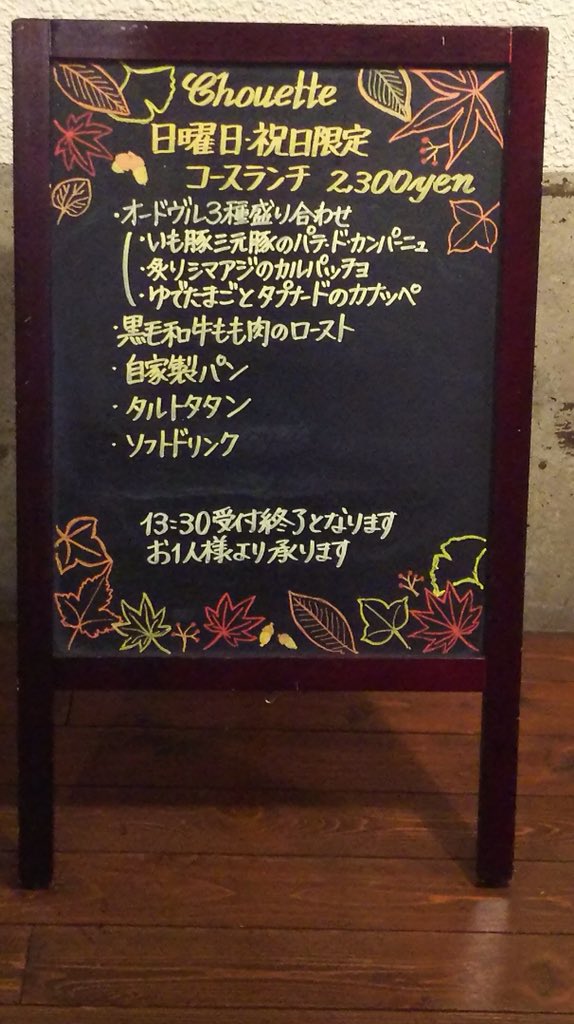 Chouette
日曜日・祝日限定
コースランチ 2,300yen
・オードヴル3種盛り合わせ
・いも豚三元豚のパテ・ド・カンパーニュ
・炙りシマアジのカルパッチョ
・ゆでたまごとタプナードのカナッペ
・黒毛和牛もも肉のロースト
・自家製パン
・タルトタタン
・ソフトドリンク
13:30受付終了となります
お1人様より承ります